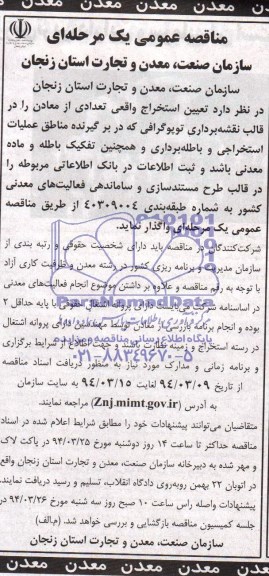 مناقصه عمومی یک مرحله‌ای
سازمان صنعت، معدن و تجارت استان زنجان
سازمان صنعت، معدن و تجارت استان زنجان
در نظر دارد تعیین استخراج واقعی تعدادی از معادن را در
قالب نقشه‌برداری توپوگرافی که در بر گیرنده مناطق عملیات
استخراجی و باطله‌برداری و همچنین تفکیک باطله و ماده
معدنی باشد و ثبت اطلاعات در بانک اطلاعاتی مربوطه را
در قالب طرح مستندسازی و ساماندهی فعالیت‌های معدنی
کشور به شماره طبقه‌بندی ۴۰۳۰۹۰۰۴ از طریق مناقصه
عمومی یک مرحله‌ای واگذار نماید.
شرکت‌کنندگان در مناقصه باید دارای شخصیت حقوقی و رتبه بندی از
سازمان مدیریت و برنامه ریزی کشور در رشته معدن و ظرفیت کاری آزاد
با توجه به رقم مناقصه و علاوه بر داشتن موضوع انجام فعالیت‌های معدنی
در اساسنامه شرکت می‌بایست دارای پروانه اشتغال حقوقی با پایه حداقل ۲
بوده و انجام برنامه بازرسی از معادن توسط مهندسین دارای پروانه اشتغال
در رسته استخراج و زمینه نظارت باشند و جهت اطلاع از شرایط برگزاری
و برنامه زمانی و مدارک مورد نیاز به منظور دریافت اسناد مناقصه
از تاریخ ۹۴/۰۳/۰۹ لغایت ۹۴/۰۳/۱۵ به سایت سازمان
به آدرس (Znj.mimt.gov.ir) مراجعه نمایند.
متقاضیان می‌توانند پیشنهادات خود را مطابق شرایط اعلام شده در اسناد
مناقصه حداکثر تا ساعت ۱۴ روز دوشنبه مورخ ۹۴/۰۳/۲۵ در پاکت لاک
و مهر شده به دبیرخانه سازمان صنعت، معدن و تجارت استان زنجان واقع
در اتوبان ۲۲ بهمن روبه‌روی دادگاه انقلاب، تسلیم و رسید دریافت نمایند.
پیشنهادات واصله راس ساعت ۱۰ صبح روز سه شنبه مورخ ۹۴/۰۳/۲۶ در
جلسه کمیسیون مناقصه بازگشایی و بررسی خواهد شد. (م.الف)
سازمان صنعت، معدن و تجارت استان زنجان
ParsNamadData
پایگاه اطلاع رسانی مناقصه و مزایده
۰۲۱-۸۸۳۴۹۶۷۰-۵